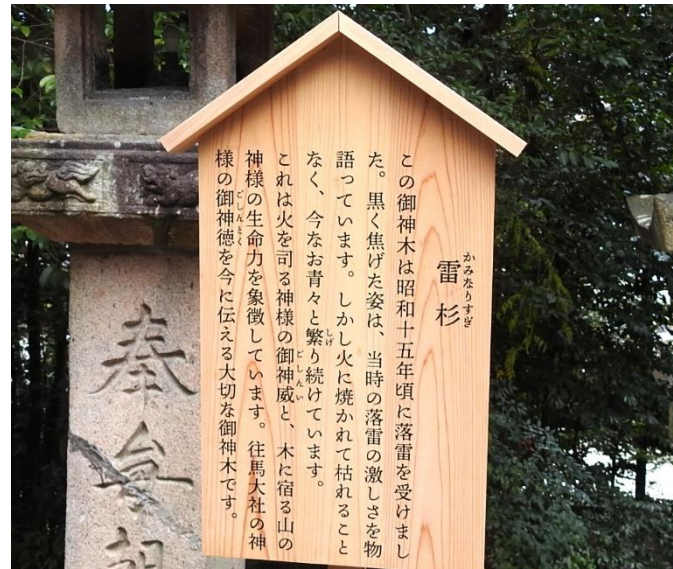 雷杉
かみなりすぎ
この御神木は昭和十五年頃に落雷を受けまし
た。黒く焦げた姿は、当時の落雷の激しさを物
語っています。しかし火に焼かれて枯れること
なく、今なお青々と繁り続けています。
しげ
これは火を司る神様の御神威と、木に宿る山の
ごしんい
神様の生命力を象徴しています。往馬大社の神
様の御神徳を今に伝える大切な御神木です。
ごしんとく
奉